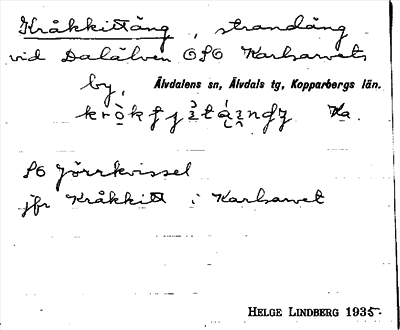 Kråkkittäng, strandäng
vid Dalälven OSO Karlsarvets
by, Älvdalens sn, Älvdals tg, Kopparbergs län.
Ka.
SO Jörrkvissel
jfr Kråkkitt i Karlsarvet
HELGE LINDBERG 1935.